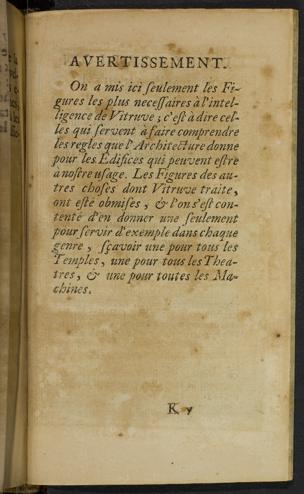 AVERTISSEMENT.
On a mis ici ſeulement les Fi-
gures les plus neceſſaires à l'intel-
ligence de Vitruve ; c'eſt à dire cel-
les qui ſervent à faire comprendre
les regles que l'Architecture donne
pour les Edifices qui peuvent eſtre
à noſtre uſage. Les Figures des au-
tres choſes dont Vitruve traite,
ont eſté obmiſes, & l'on s'eſt con-
tenté d'en donner une ſeulement
pour ſervir d'exemple dans chaque
genre, ſçavoir une pour tous les
Temples, une pour tous les Thea-
tres, & une pour toutes les Ma-
chines.
K v